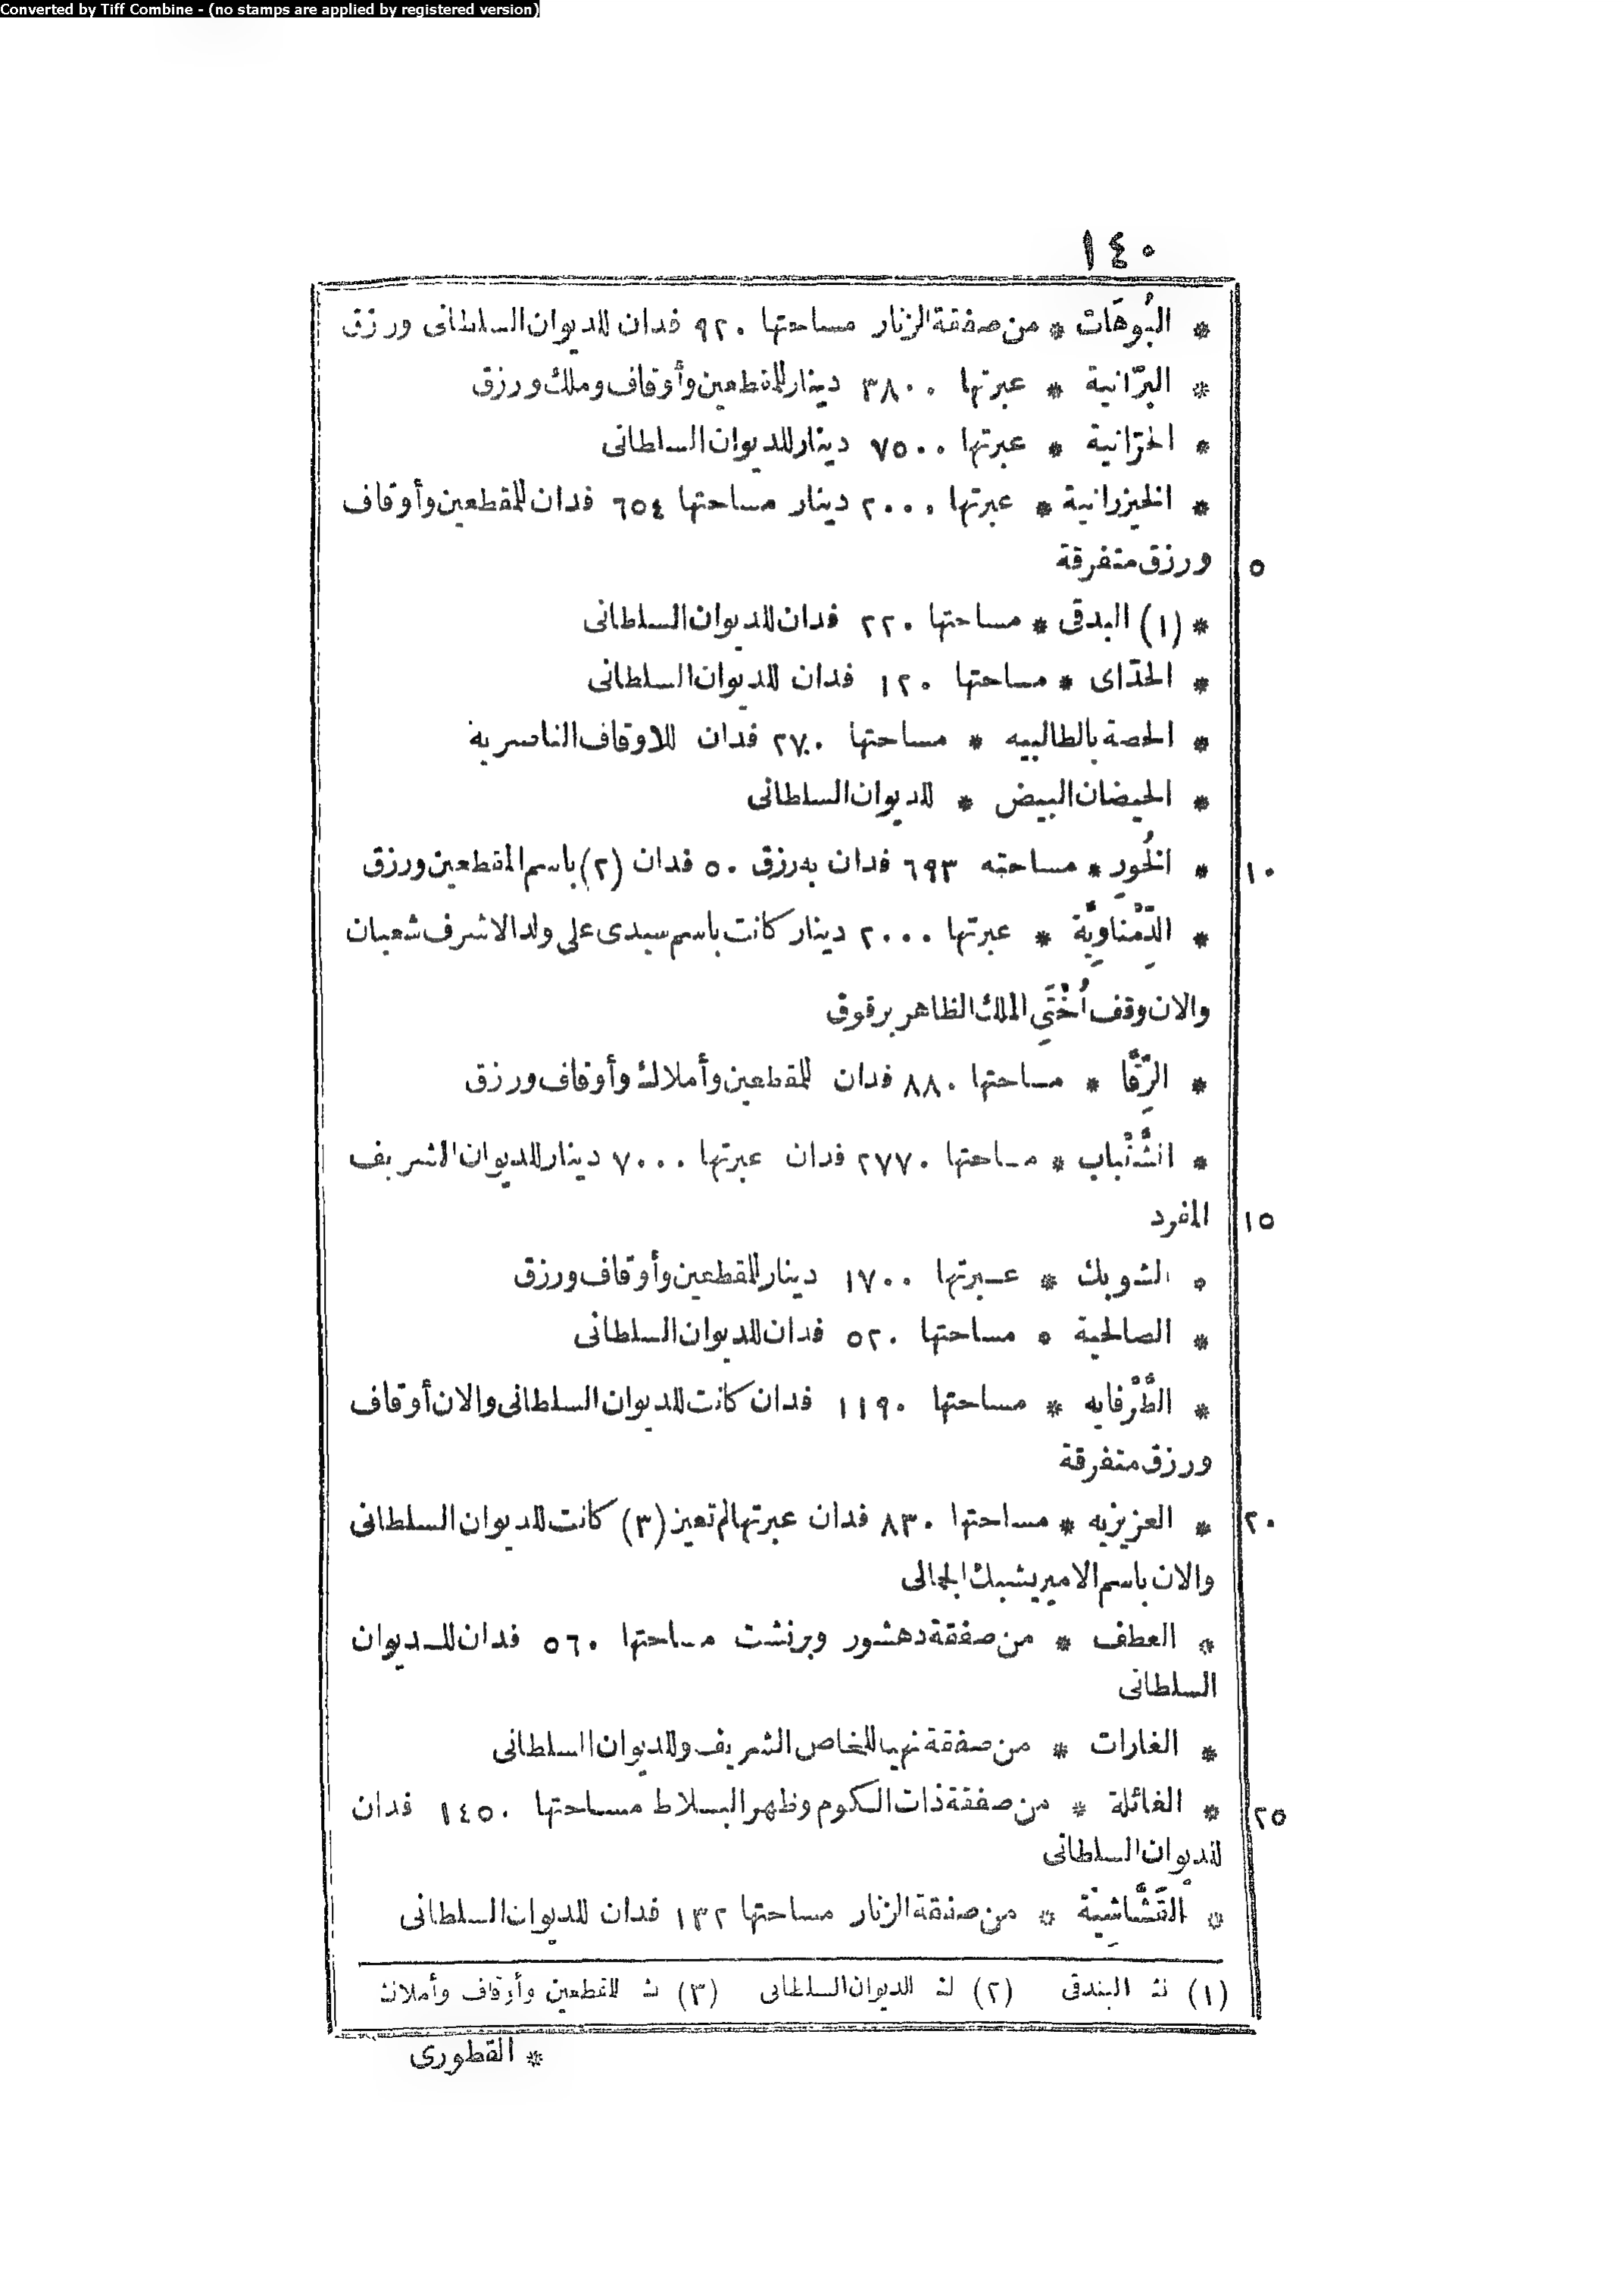 Converted by Tiff Combine - (no stamps are applied by registered version)
١٤٠
* البُوهَات * من صفقة الزنار مساحتها ٩٢٠ فدان للديوان السلطانى ورزق
* البرّانية * عبرتها ٣٨٠٠ دينار للمقطعين وأوقاف وملك ورزق
* الحرّانية * عبرتها ٧٥٠٠ دينار للديوان السلطانى
* الخيزرانية * عبرتها ٢٠٠٠ دينار مساحتها ٦٥٤ فدان للمقطعين وأوقاف
٥ ورزق متفرقة
* (١) البدقى * مساحتها ٢٢٠ فدان للديوان السلطانى
* الحدّاى * مساحتها ١٢٠ فدان للديوان السلطانى
* الحصة بالطالبيه * مساحتها ٢٧٠ فدان للاوقاف الناصرية
* الحيضان البيض * للديوان السلطانى
١٠ * الخُور * مساحته ٦٩٣ فدان به رزق ٥٠ فدان (٢) باسم المقطعين ورزق
* الدِّمْنَاوِيَّة * عبرتها ٢٠٠٠ دينار كانت باسم سيدى على ولد الاشرف شعبان
والان وقف اُخْتَىِ الملك الظاهر برقوق
* الرِّقَّا * مساحتها ٨٨٠ فدان للمقطعين وأملاك وأوقاف ورزق
* الشَّنْباب * مساحتها ٢٧٧٠ فدان عبرتها ٧٠٠٠ دينار للديوان الشريف
١٥ المفرد
* الشوبك * عبرتها ١٧٠٠ دينار للمقطعين وأوقاف ورزق
* الصالحية * مساحتها ٥٢٠ فدان للديوان السلطانى
* الطَّرْفايه * مساحتها ١١٩٠ فدان كانت للديوان السلطانى والان أوقاف
ورزق متفرقة
٢٠ * العزيزيه * مساحتها ٨٣٠ فدان عبرتها لم تعين (٣) كانت للديوان السلطانى
والان باسم الامير يشبك الجمالى
* العطف * من صفقة دهشور وبرنشت مساحتها ٥٦٠ فدان للديوان
السلطانى
* الغارات * من صفقة نهيا للخاص الشريف وللديوان السلطانى
٢٥ * الغائلة * من صفقة ذات الكوم وظهر البسلاط مساحتها ١٤٥٠ فدان
للديوان السلطانى
* القَشَّاشِيَّة * من صفقة الزنار مساحتها ١٣٢ فدان للديوان السلطانى
(١) نـ البندقى (٢) نـ الديوان السلطانى (٣) نـ للمقطعين وأوقاف وأملاك
* القطورى